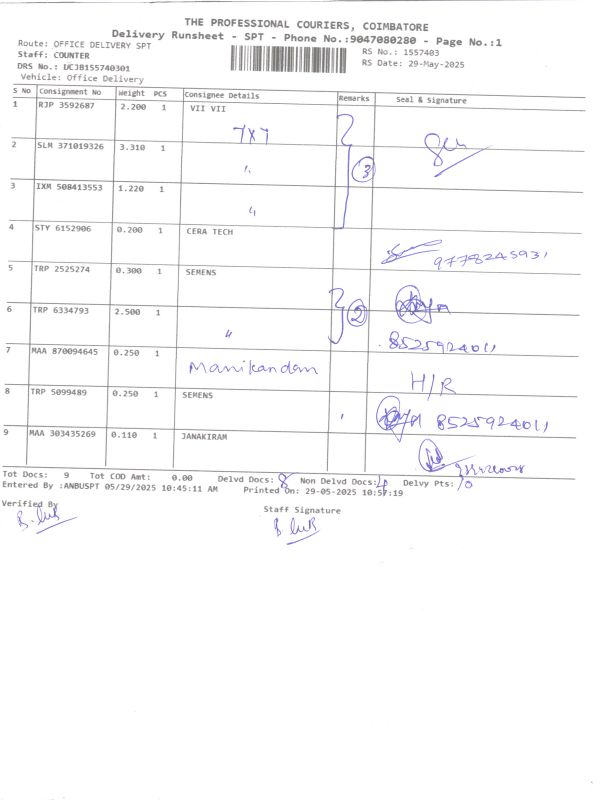 THE PROFESSIONAL COURIERS, COIMBATORE
Delivery Runsheet - SPT - Phone No.:9047080280 - Page No.:1
Route: OFFICE DELIVERY SPT
Staff: COUNTER
DRS No.: UCJB155740301
Vehicle: Office Delivery
RS No.: 1557403
RS Date: 29-May-2025
S No Consignment No Weight PCS Consignee Details Remarks Seal & Signature
1 RJP 3592687 2.200 1 VII VII
7X7
2 SLM 371019326 3.310 1 "
3
3 IXM 508413553 1.220 1 "
4 STY 6152906 0.200 1 CERA TECH
9778245931
5 TRP 2525274 0.300 1 SEMENS
6 TRP 6334793 2.500 1 "
2
8525924011
7 MAA 870094645 0.250 1 Manikandan
H/R
8 TRP 5099489 0.250 1 SEMENS
8525924011
9 MAA 303435269 0.110 1 JANAKIRAM
Tot Docs: 9 Tot COD Amt: 0.00 Delvd Docs: 8 Non Delvd Docs: Delvy Pts:
Entered By :ANBUSPT 05/29/2025 10:45:11 AM Printed On: 29-05-2025 10:57:19
Verified By
Staff Signature